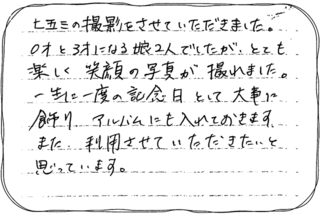 七五三の撮影をさせていただきました。
0才と3才になる娘2人でしたが、とても
楽しく笑顔の写真が撮れました。
一生に一度の記念日として大事に
飾り アルバムにも入れておきます
また 利用させていただきたいと
思っています。